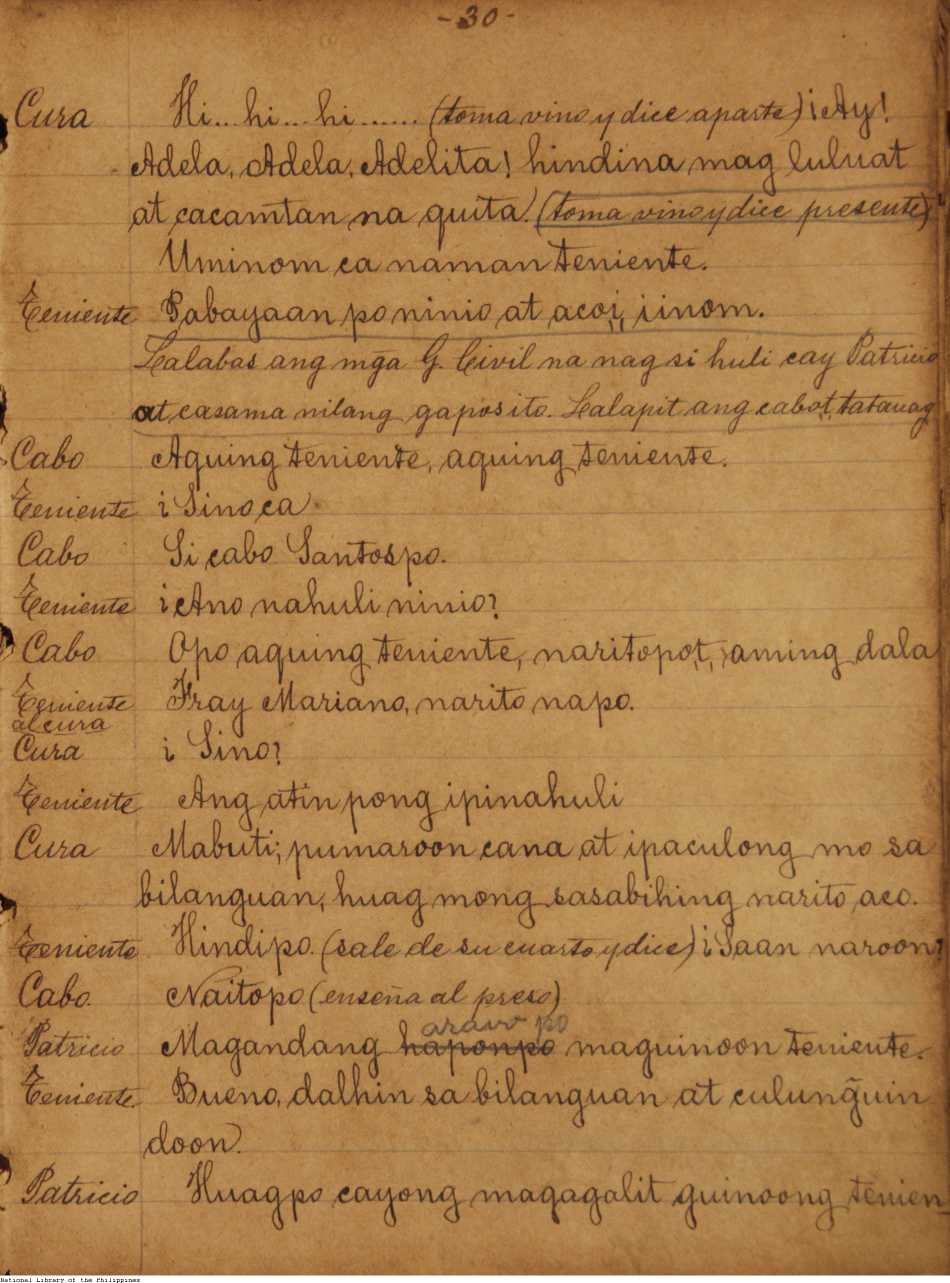 -30-
Cura Hi... hi... hi....... (toma vino y dice aparte) ¡Ay!
Adela, Adela, Adelita! hindina mag luluat
at cacamtan na quita. (toma vino y dice presente)
Uminom ca naman teniente.
Teniente Pabayaan po ninio at acoi, iinom.
Lalabas ang mga G. Civil na nag si huli cay Patricio
at casama nilang gapos ito. Lalapit ang cabo,t, tatauag
Cabo Aquing teniente, aquing teniente.
Teniente ¿Sino ca
Cabo Si cabo Santos po.
Teniente ¿Ano nahuli ninio?
Cabo Opo aquing teniente, naritopo,t, aming dala
Teniente Fray Mariano, narito napo.
al cura
Cura ¿Sino?
Teniente Ang atin pong ipinahuli
Cura Mabuti; pumaroon cana at ipaculong mo sa
bilanguan, huag mong sasabihing narito aco.
Teniente Hindipo. (sale de su cuarto y dice) ¿Saan naroon?
Cabo Naitopo (enseña al preso)
arawpo
Patricio Magandang haponpo maguinoon teniente.
Teniente. Bueno, dalhin sa bilanguan at culung̃uin
doon.
Patricio Huagpo cayong magagalit guinoong tenien-
National Library of the Philippines